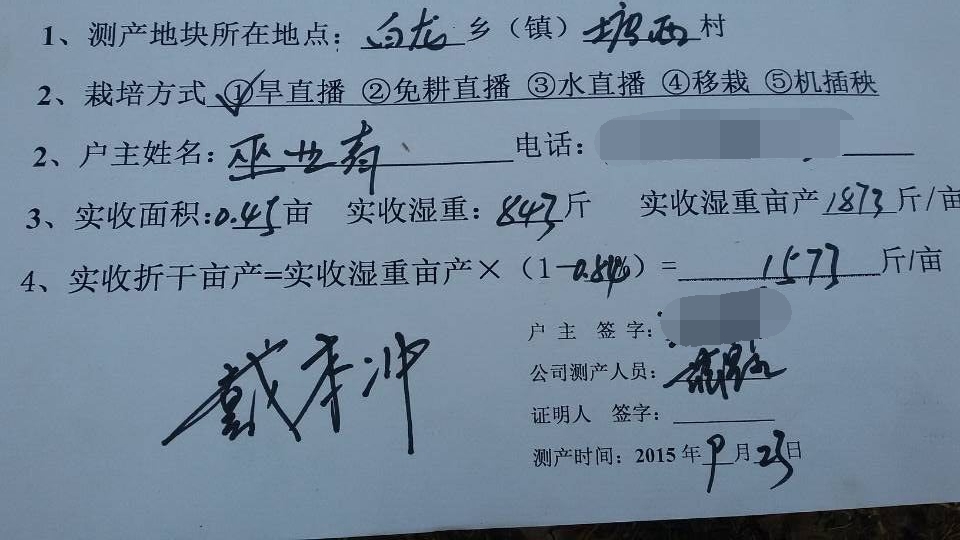 1、测产地块所在地点：白龙乡（镇）塘西村
2、栽培方式 ①旱直播 ②免耕直播 ③水直播 ④移栽 ⑤机插秧
2、户主姓名：巫业寿 电话：
3、实收面积：0.45亩 实收湿重：843斤 实收湿重亩产1873斤/亩
4、实收折干亩产=实收湿重亩产×（1-）=1573斤/亩
户 主 签 字：
公司测产人员：
证明人 签字：
测产时间：2015年9月23日